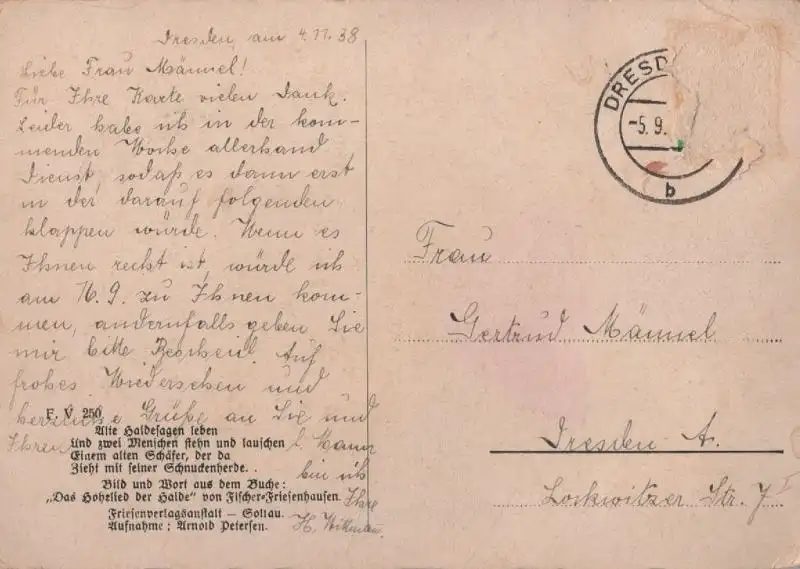 Dresden, am 4.11.38
Liebe Frau Männel!
Für Ihre Karte vielen Dank.
Leider habe ich in der kom-
menden Woche allerhand
Dienst, sodaß es dann erst
in der darauf folgenden
klappen würde. Wenn es
Ihnen recht ist, würde ich
am 16.9. zu Ihnen kom-
men, andernfalls geben Sie
mir bitte Bescheid. Auf
frohes Wiedersehen und
herzliche Grüße an Sie und
Ihren l. Mann
bin ich
Ihre
H.
F. V. 250
Alte Haidesagen leben
Und zwei Menschen stehn und lauschen
Einem alten Schäfer, der da
Zieht mit seiner Schnuckenherde. .
Bild und Wort aus dem Buche:
„Das Hohelied der Haide“ von Fischer-Friesenhausen.
Friesenverlagsanstalt — Soltau.
Aufnahme: Arnold Petersen.
DRESD
-5.9.
b
Frau
Gertrud Männel
Dresden A.
Lockwitzer Str. 7